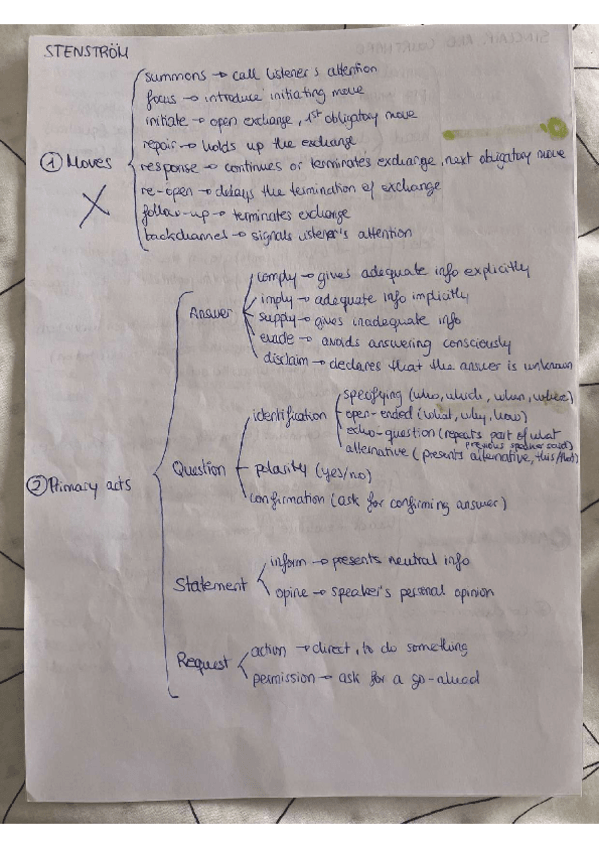 STENSTRÖM
① Moves
summons → call listener's attention
focus → introduce initiating move
initiate → open exchange, 1st obligatory move
repair → holds up the exchange
response → continues or terminates exchange, next obligatory move
re-open → delays the termination of exchange
follow-up → terminates exchange
backchannel → signals listener's attention
② Primary acts
Answer
comply → gives adequate info explicitly
imply → adequate info implicitly
supply → gives inadequate info
evade → avoids answering consciously
disclaim → declares that the answer is unknown
Question
identification
specifying (who, which, when, where)
open-ended (what, why, how)
echo-question (repeats part of what
previous speaker said)
alternative (presents alternative, this/that)
polarity (yes/no)
confirmation (ask for confirming answer)
Statement
inform → presents neutral info
opine → speaker's personal opinion
Request
action → direct, to do something
permission → ask for a go-ahead